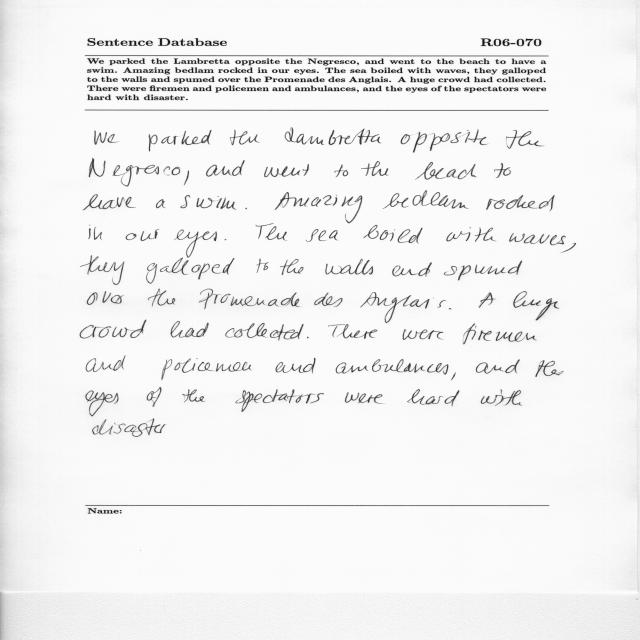 Sentence Database R06-070
We parked the Lambretta opposite the Negresco, and went to the beach to have a
swim. Amazing bedlam rocked in our eyes. The sea boiled with waves, they galloped
to the walls and spumed over the Promenade des Anglais. A huge crowd had collected.
There were firemen and policemen and ambulances, and the eyes of the spectators were
hard with disaster.
We parked the Lambretta opposite the
Negresco, and went to the beach to
have a swim. Amazing bedlam rocked
in our eyes. The sea boiled with waves,
they galloped to the walls and spumed
over the Promenade des Anglais. A huge
crowd had collected. There were firemen
and policemen and ambulances, and the
eyes of the spectators were hard with
disaster
Name: